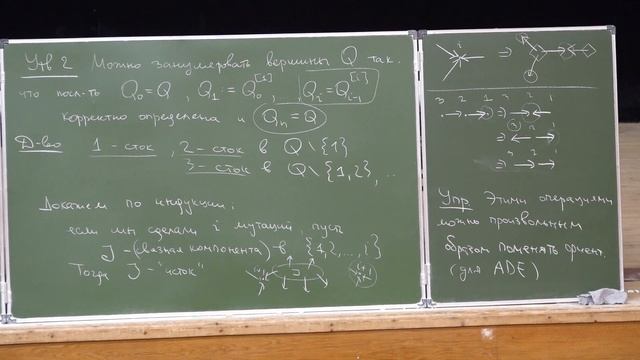 Утв 2 Можно занумеровать вершины Q так.
что посл-ть Q₀ = Q , Q₁ := Q₀^[1] , Qᵢ = Qᵢ₋₁^[i]
корректно определена и Qₙ = Q
Д-во 1 - сток , 2 - сток в Q \ {1}
3 - сток в Q \ {1,2}, ...
Докажем по индукции:
если мы сделали i мутаций, пусть
J - (связная компонента) в {1,2,...,i}
Тогда J - "исток"
J
i ⇒
3 2 1 ⇒ 3 2 1
Упр Этими операциями
можно произвольным
образом поменять ориент.
(для ADE)